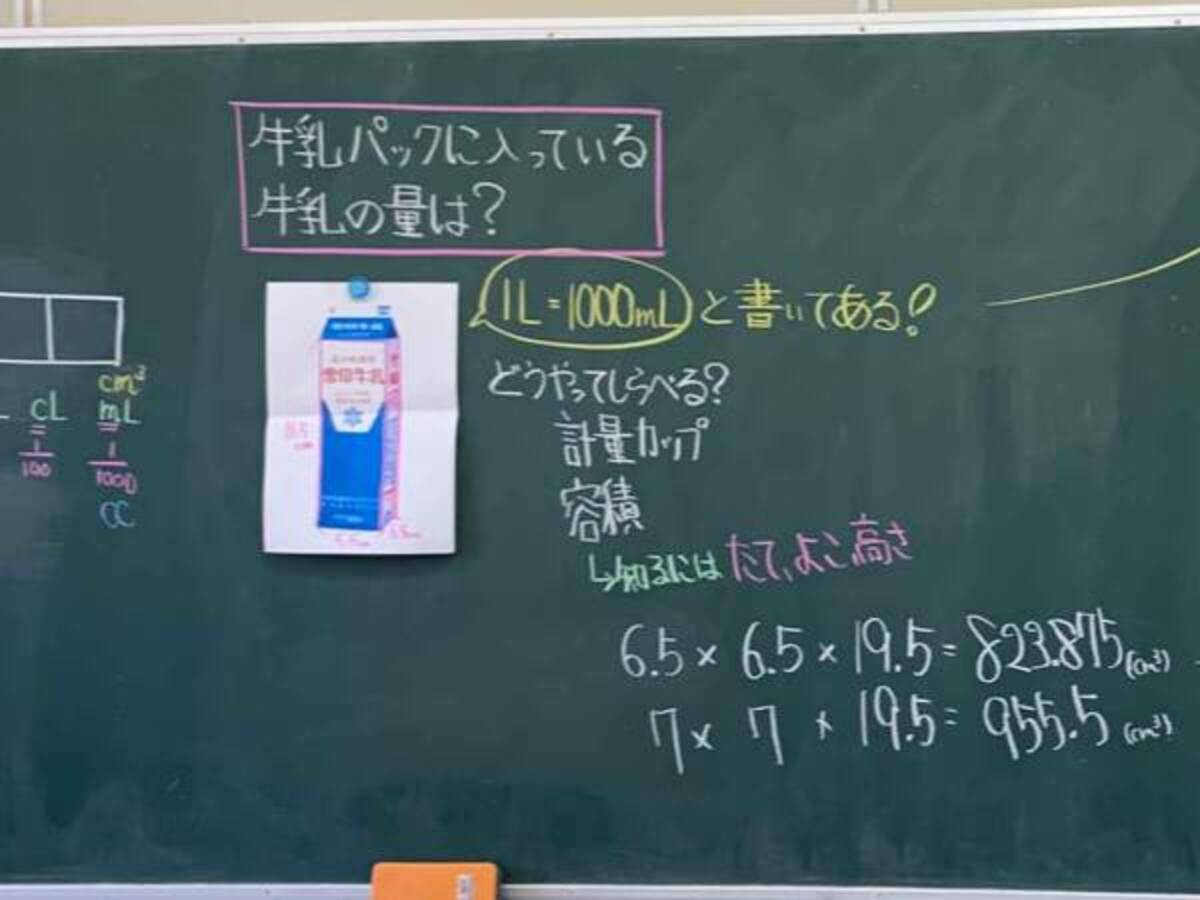 牛乳パックに入っている
牛乳の量は?
1L=1000mLと書いてある!
どうやってしらべる?
計量カップ
容積
↳知るには たて、よこ、高さ
6.5 × 6.5 × 19.5 = 823.875 (cm³)
7 × 7 × 19.5 = 955.5 (cm³)
cm³
cL mL
1/100 1/1000
cc
雪印牛乳